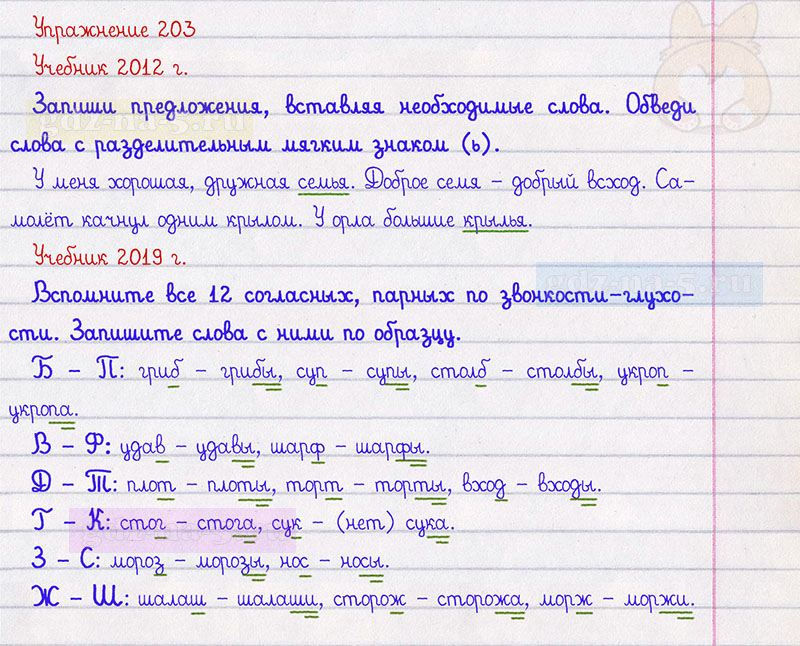 Упражнение 203
Учебник 2012 г.
Запиши предложения, вставляя необходимые слова. Обведи
слова с разделительным мягким знаком (ь).
У меня хорошая, дружная семья. Доброе семя – добрый всход. Са-
молёт качнул одним крылом. У орла большие крылья.
Учебник 2019 г.
Вспомните все 12 согласных, парных по звонкости-глухо-
сти. Запишите слова с ними по образцу.
Б – П: гриб – грибы, суп – супы, столб – столбы, укроп –
укропа.
В – Ф: удав – удавы, шарф – шарфы.
Д – Т: плот – плоты, торт – торты, вход – входы.
Г – К: стог – стога, сук – (нет) сука.
З – С: мороз – морозы, нос – носы.
Ж – Ш: шалаш – шалаши, сторож – сторожа, морж – моржи.